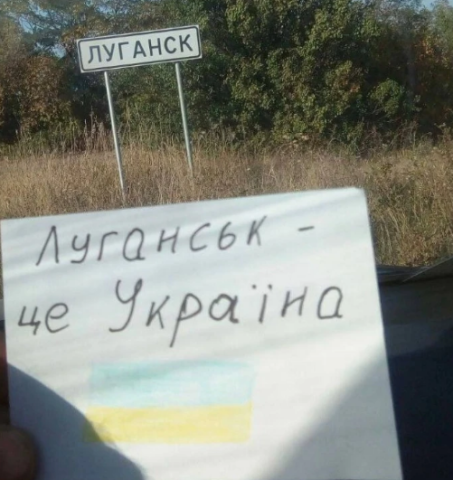 ЛУГАНСК
Луганськ -
це Україна